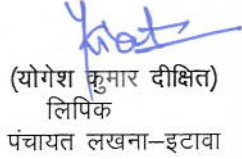 (योगेश कुमार दीक्षित)
लिपिक
पंचायत लखना–इटावा